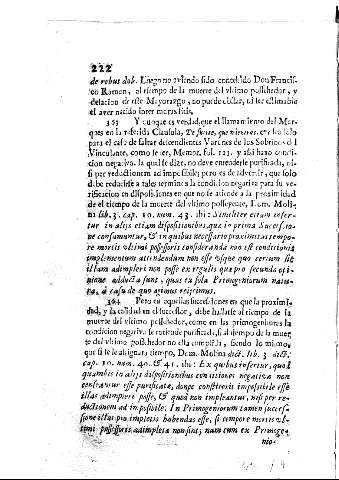 222
de rebus dub. Luego no aviendo sido concebido Don Francis-
co Ramon, al tiempo de la muerte del vltimo possehedor, y
delacion de este Mayorazgo, no puede obstar, ni ser estimable
el aver nacido inter moras litis.
363 Y aunque es verdad, que el llamamiento del Mar-
ques en la referida Clausula, De suerte, que vinieren, &c. es solo
para el caso de faltar descendientes Varones de los Sobrinos del
Vinculante, como se lee, Memor. ful. 123. y assi bazo condi-
cion negativa, la qual se dize, no deve entenderse purificada, ni-
si per reductionem ad impossibile; pero es de advertir, que solo
debe reducirse a tales terminos la condicion negativa para su ve-
rificacion en disposiciones en que no se atiende a la proximidad
de el tiempo de la muerte del vltimo posseyente, Dom. Moli-
na lib. 3. cap. 10. num. 43. ibi: Similiter etiam infer-
tur in alijs etiam dispositionibus, que in prima Successio-
ne consumuntur, & in quibus necessario proximitas tempo-
re mortis vltimi possessoris consideranda non est conditionis
implementum attendendum non esse vsque quo certum sit
illam adimpleri non posse ex regulis que pro secunda opi-
nione adducta sunt, quas tu sola Primogeniorum natu-
ra, à casu de quo agimus reijcimus.
364 Pero en aquellas successiones en que la proximi-
dad, y la calidad en el successor, debe hallarse al tiempo de la
muerte del vltimo possehedor, como en las primogenituras la
condicion negativa se entiende purificada, si al tiempo de la muer-
te del vltimo possehedor no esta cumplida, siendo lo mismo,
que si se le assignara tiempo, Dom. Molina dict. lib. 3. dict.
cap. 10. num. 40. & 41. ibi: Ex quibus infertur, quod
quamvis in alijs dispositionibus conditiones negativa non
censeantur esse purificata, donec constiterit impossibile esse
illas adimpleri posse, & quod non impleantur, nisi per re-
ductionem ad impossibile. In Primogenijs tamen succes-
sione illas pro impletis habendas esse, si tempore mortis vl-
timi possessoris adimpleta non sint; nam cum ex Primoge-
nio-